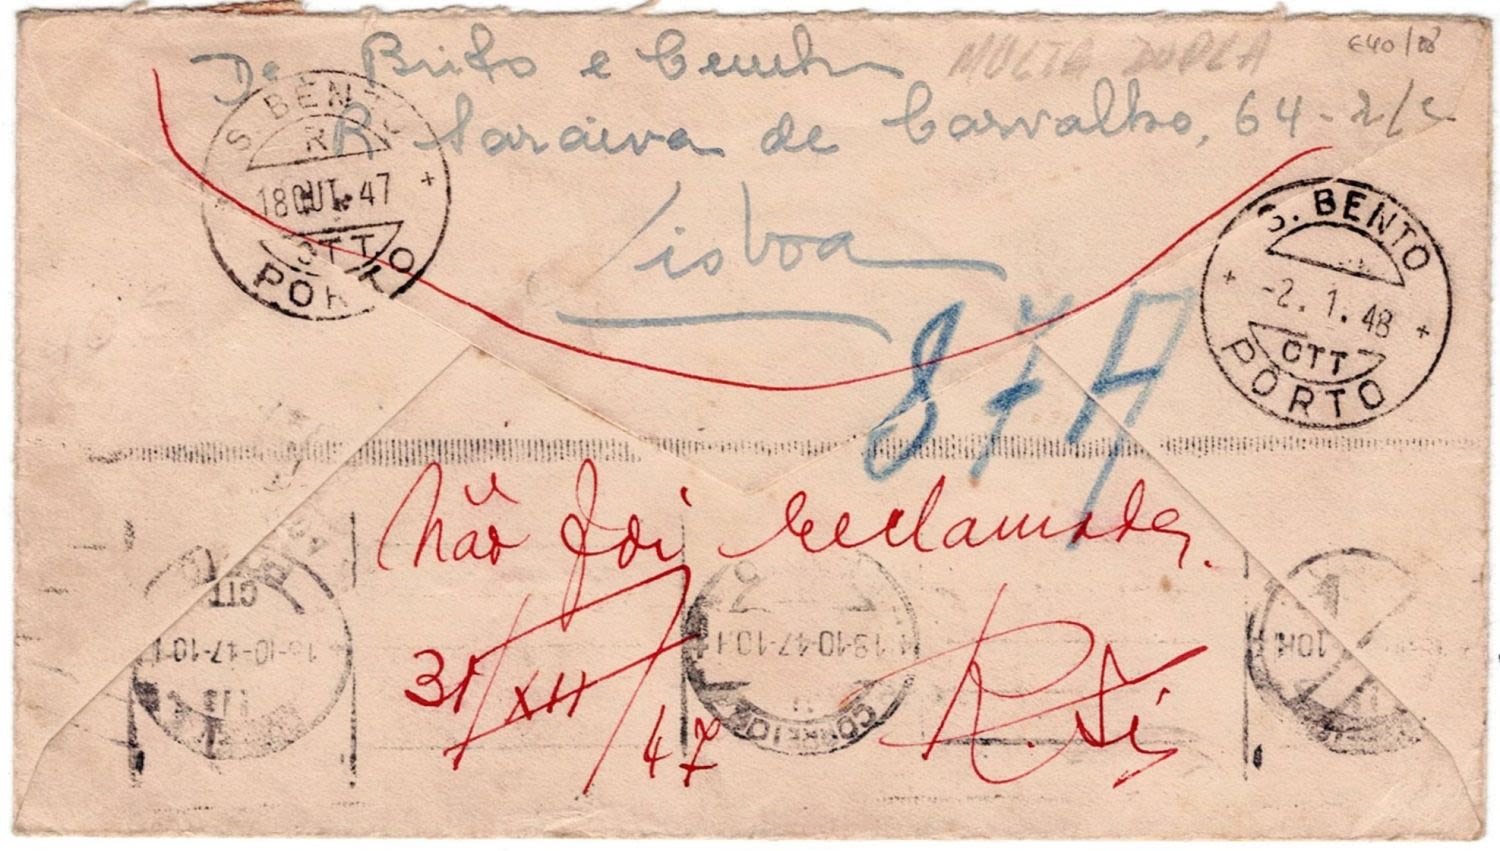 De Brito e Cunha
MULTA DUPLA
€40/
R Saraiva de Carvalho, 64-r/c
Lisboa
S. BENTO
18 OUT. 47
CTT
PORTO
S. BENTO
-2. 1. 48
CTT
PORTO
Não foi reclamada.
31/XII/47
CTT
18-10-47-10.
18-10-47-10.
CORREIO
10H